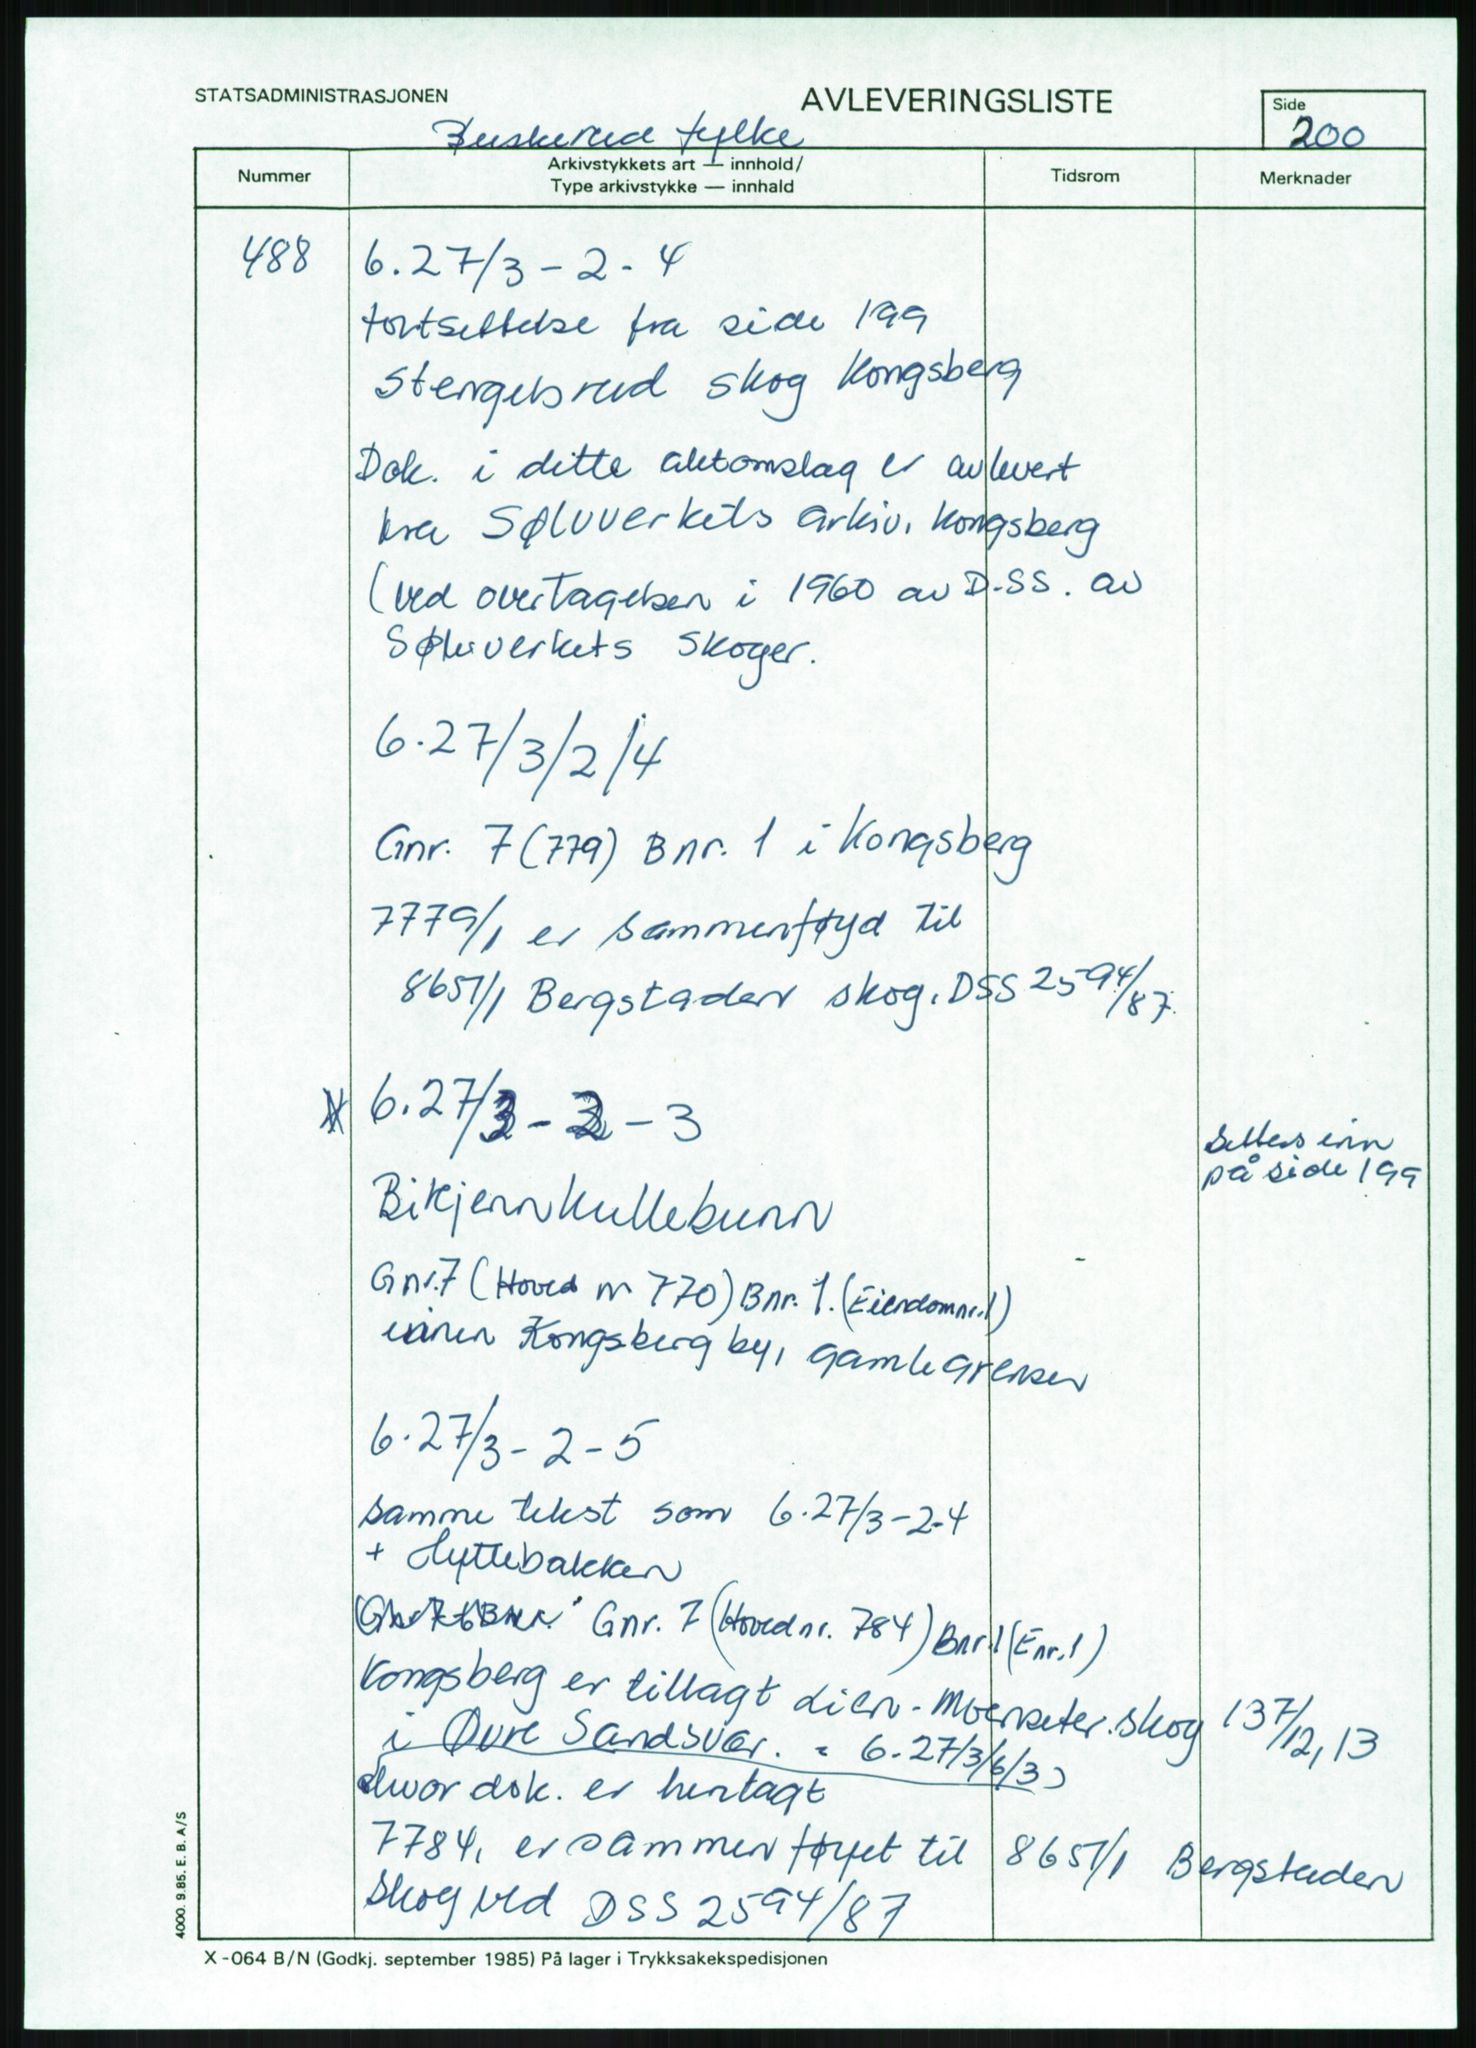 STATSADMINISTRASJONEN
AVLEVERINGSLISTE
Side
200
Buskerud fylke
Nummer
Arkivstykkets art — innhold/
Type arkivstykke — innhald
Tidsrom
Merknader
488 6.27/3 - 2 - 4
fortsettelse fra side 199
Stengelsrud skog Kongsberg
Dok. i dette aktomslag er avlevert
fra Sølvverkets arkiv, Kongsberg
(ved overtagelsen i 1960 av D.SS. av
Sølvverkets skoger.
6.27/3/2/4
Gnr. 7 (779) Bnr. 1 i Kongsberg
7779/1 er sammenføyd til
8651/1 Bergstaden skog. DSS 2594/87.
6.27/3 - 2 - 3
Settes inn
på side 199
Bikjennkullebunn
Gnr. 7 (Hoved nr 770) Bnr. 1. (Eiendomnr. 1)
innen Kongsberg by, gamle grenser
6.27/3 - 2 - 5
samme tekst som 6.27/3-2-4
+ Hyttebakken
Gnr. 7 (Hovednr. 784) Bnr 1 (Enr. 1)
Kongsberg er tillagt Lien - Moenseter. skog 137/12, 13
i Øvre Sandsvær. = 6.27/3/6/3)
hvor dok. er henlagt
7784, er sammenføyet til 8651/1 Bergstaden
skog ved DSS 2594/87
4000. 9.85. E. B. A/S
X-064 B/N (Godkj. september 1985) På lager i Trykksakekspedisjonen